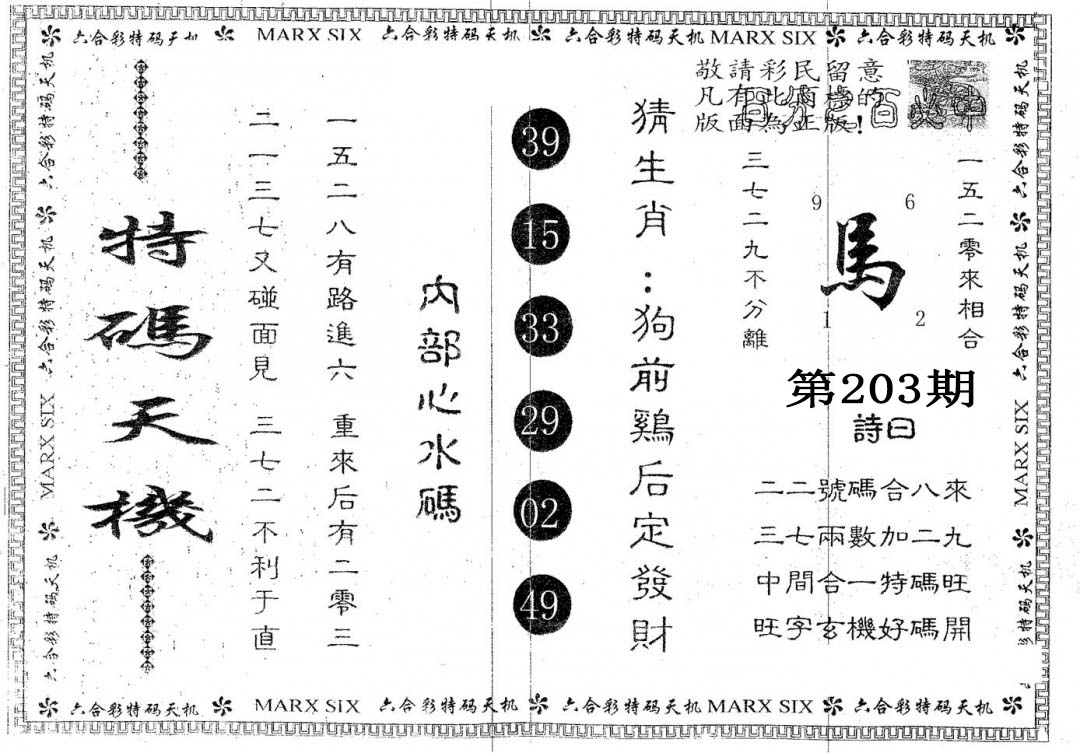 六合彩特码天机 MARX SIX 六合彩特码天机 六合彩特码天机 MARX SIX 六合彩特码天机
敬請彩民留意
凡有此商標的
版面為正版!
一五二零來相合
馬
9
6
1
2
三七二九不分離
第203期
詩曰
二二號碼合八來
三七兩數加二九
中間合一特碼旺
旺字玄機好碼開
猜生肖:狗前鷄后定發財
39
15
33
29
02
49
內部心水碼
一五二八有路進六 重來后有二零三
二一三七又碰面見 三七二不利于直
特碼天機
六合彩特码天机 MARX SIX 六合彩特码天机
六合彩特码天机 六合彩特码天机 MARX SIX 彩特码天机
六合彩特码天机 MARX SIX 六合彩特码天机 六合彩特码天机 MARX SIX 六合彩特码天机